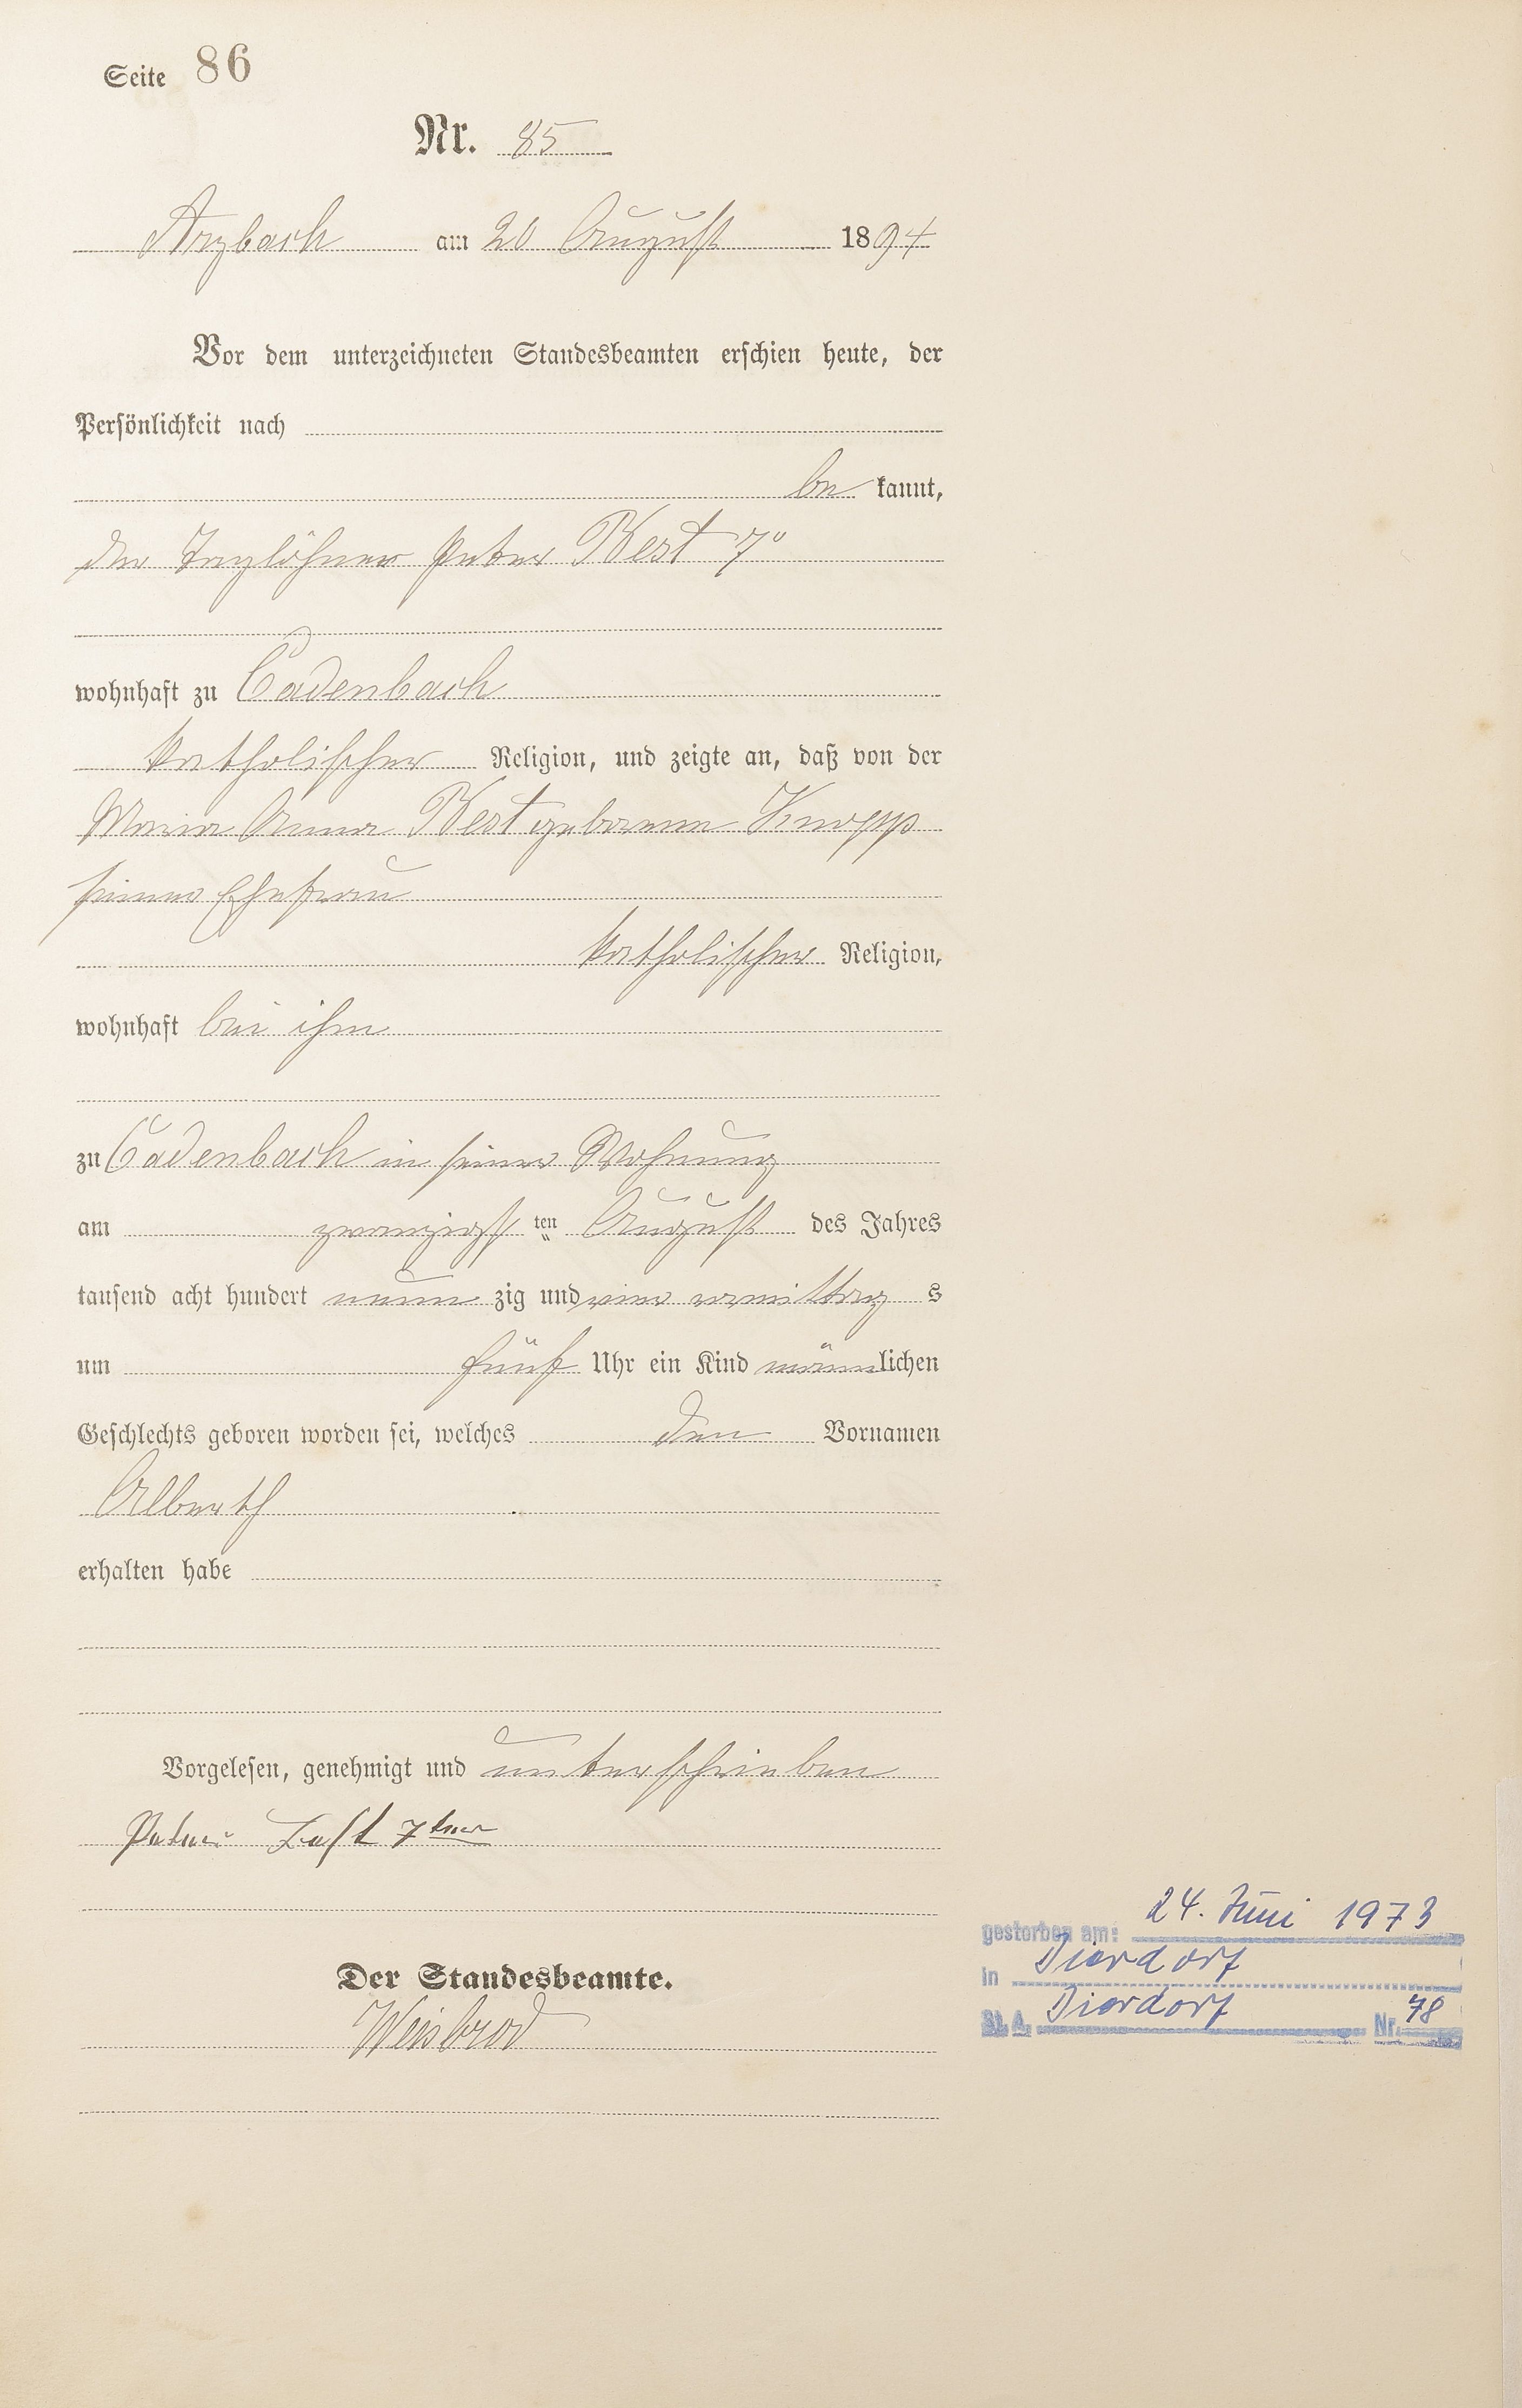 Seite 86
Nr. 85
Arzbach am 20 August 1894
Vor dem unterzeichneten Standesbeamten erschien heute, der
Persönlichkeit nach
be kannt,
der Taglöhner Peter Best 7º
wohnhaft zu Cadenbach
katholischer Religion, und zeigte an, daß von der
Maria Anna Best geborenen Knopp
seiner Ehefrau
katholischer Religion,
wohnhaft bei ihm
zu Cadenbach in seiner Wohnung
am zwanzigst ten August des Jahres
tausend acht hundert neun zig und vier vormittag s
um fünf Uhr ein Kind männlichen
Geschlechts geboren worden sei, welches den Vornamen
Alberth
erhalten habe
Vorgelesen, genehmigt und unterschrieben
Peter 7ter
Der Standesbeamte.
Weisbrod
gestorben am: 24. Juni 1973
in Dierdorf
St. A. Dierdorf Nr. 78